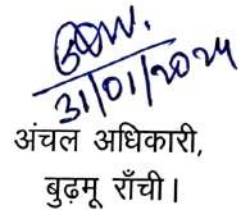 31/01/2024
अंचल अधिकारी,
बुढ़मू राँची।